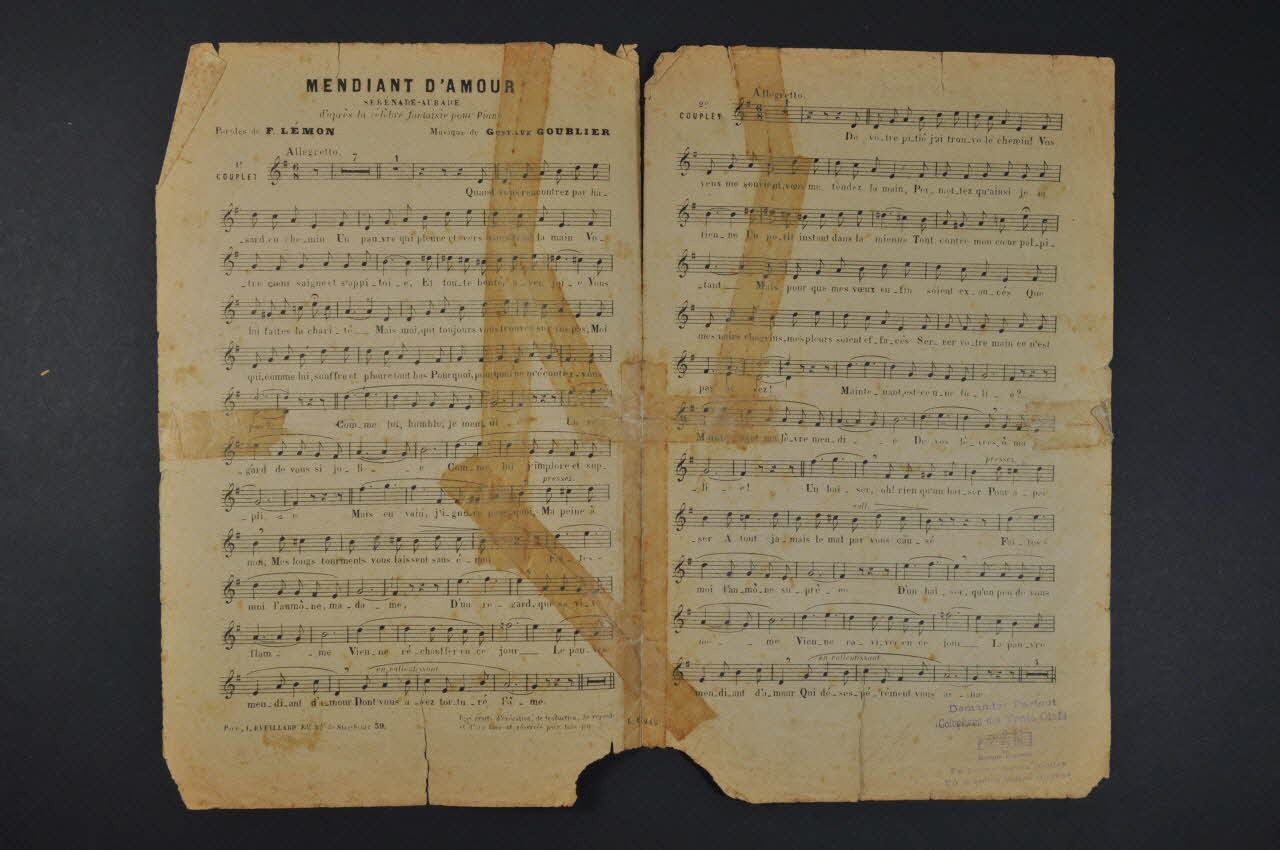 MENDIANT D'AMOUR
SÉRÉNADE-AUBADE
d'après la célèbre fantaisie pour Piano
Paroles de F. LÉMON Musique de GUSTAVE GOUBLIER
Allegretto.
1er COUPLET
7 1
Quand vous rencontrez par ha-
-sard en che-min Un pau-vre qui pleure et vers vous tend la main Vo-
-tre cœur saigne et s'appi-toi-e, Et tou-te bonté, a-vec joi-e Vous
lui faites la chari-té Mais moi, qui toujours vous trouvez sur vos pas, Moi
qui, comme lui, souffre et pleure tout bas Pourquoi, pourquoi ne m'écoutez-vous
pas?
Com-me lui, humble, je men-di-
-gard de vous si jo-li-e Com-me lui j'implore et sup-
pressez
pli-e Mais en vain, j'ignore pourquoi, Ma peine à
moi, Mes longs tourments vous laissent sans é-moi Fai-tes-
moi l'aumô-ne, ma-da-me, D'un re-gard, que sa vi-ve
flam-me Vien-ne ré-chauffer en ce jour Le pau-vre
en rallentissant
men-di-ant d'amour Dont vous a-vez tor-tu-ré l'â-me.
Paris, L. EVEILLARD, Edr. Bd de Strasbourg 39.
Tous droits d'exécution, de traduction, de reprod-
2e COUPLET
Allegretto.
1
De vo-tre pi-tié j'ai trou-vé le chemin! Vos
yeux me sourient, vous me tendez la main, Per-met-tez qu'ainsi je la
tien-ne Un pe-tit instant dans la mienne Tout contre mon cœur pal-pi-
-tant Mais pour que mes vœux en-fin soient ex-au-cés Que
mes noirs chagrins, mes pleurs soient ef-fa-cés Ser-rer vo-tre main ce n'est
pas as-sez! Mainte-nant, est-ce u-ne fo-li-e?
Mainte-nant ma lè-vre men-di-e De vos lè-vres, ô ma
pressez
li-e! Un bai-ser, oh! rien qu'un bai-ser Pour a-pai-
rall.
-ser A tout ja-mais le mal par vous cau-sé Fai-tes-
moi l'au-mô-ne su-prê-me D'un bai-ser, qu'un peu de vous
mê-me Vien-ne ra-vi-ver en ce jour Le pau-vre
en rallentissant
1
men-di-ant d'a-mour Qui dé-ses-pé-rément vous ai-me
Demandez Partout